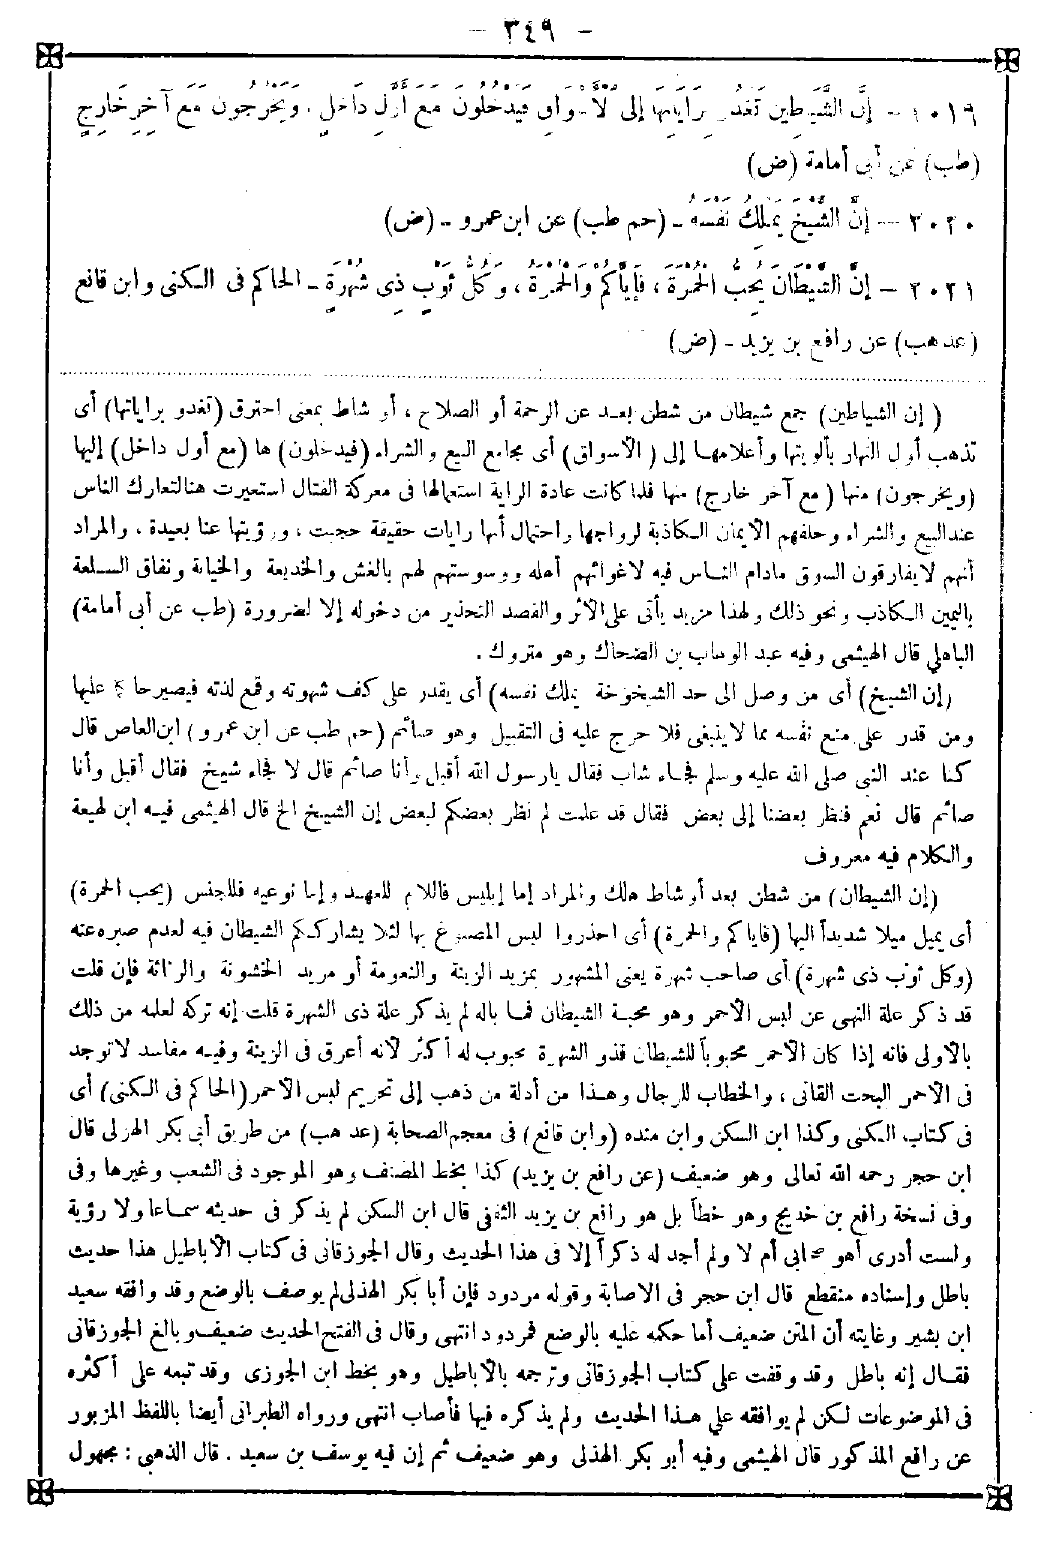 - ٣٤٩ -
٢٠١٩ - إِنَّ الشَّيَاطِينَ تَغْدُو بِرَايَاتِهَا إِلَى الْأَسْوَاقِ فَيَدْخُلُونَ مَعَ أَوَّلِ دَاخِلٍ، وَيَخْرُجُونَ مَعَ آخِرِ خَارِجٍ
(طب) عن أبى أمامة (ض)
٢٠٢٠ - إِنَّ الشَّيْخَ يَمْلِكُ نَفْسَهُ - (حم طب) عن ابن عمرو - (ض)
٢٠٢١ - إِنَّ الشَّيْطَانَ يُحِبُّ الْحُمْرَةَ، فَإِيَّاكُمْ وَالْحُمْرَةَ، وَكُلَّ ثَوْبٍ ذِى شُهْرَةٍ - الحاكم فى الكنى وابن قانع
(عد هب) عن رافع بن يزيد - (ض)
(إن الشياطين) جمع شيطان من شطن بعد عن الرحمة أو الصلاح، أو شاط بمعنى احترق (تغدو براياتها) أى
تذهب أول النهار بألويتها وأعلامها إلى (الأسواق) أى مجامع البيع والشراء (فيدخلون) ها (مع أول داخل) إليها
(ويخرجون) منها (مع آخر خارج) منها فلما كانت عادة الراية استعمالها فى معركة القتال استعيرت هنا لتعارك الناس
عند البيع والشراء وحلفهم الأيمان الكاذبة لرواجها واحتمال أنها رايات حقيقة حجبت، ورؤيتها عنا بعيدة، والمراد
أنهم لا يفارقون السوق مادام الناس فيه لاغوائهم أهله ووسوستهم لهم بالغش والخديعة والخيانة ونفاق السلعة
باليمين الكاذب ونحو ذلك ولهذا مزيد يأتى على الأثر والقصد التحذير من دخوله إلا لضرورة (طب عن أبى أمامة)
الباهلى قال الهيثمى وفيه عبد الوهاب بن الضحاك وهو متروك.
(إن الشيخ) أى من وصل الى حد الشيخوخة يملك نفسه) أى يقدر على كف شهوته وقمع لذته فيصير حاكم عليها
ومن قدر على منع نفسه مما لاينبغى فلا حرج عليه فى التقبيل وهو صائم (حم طب عن ابن عمرو) ابن العاص قال
كنا عند النبى صلى الله عليه وسلم فجاء شاب فقال يارسول الله أقبل وأنا صائم قال لا فجاء شيخ فقال أقبل وأنا
صائم قال نعم فنظر بعضنا إلى بعض فقال قد علمت لم نظر بعضكم لبعض إن الشيخ الخ قال الهيثمى فيه ابن لهيعة
والكلام فيه معروف
(إن الشيطان) من شطن بعد أو شاط هلك والمراد إما إبليس فاللام للعهد وإما نوعيه فللجنس (يحب الحمرة)
أى يميل ميلا شديداً اليها (فاياكم والحمرة) أى احذروا لبس المصبوغ بها لئلا يشارككم الشيطان فيه لعدم صبره عنه
(وكل ثوب ذى شهرة) أى صاحب شهرة يعنى المشهور بمزيد الزينة والنعومة أو مزيد الخشونة والرثاثة فإن قلت
قد ذكر علة النهى عن لبس الأحمر وهو محبة الشيطان فما باله لم يذكر علة ذى الشهرة قلت إنه تركه لعلمه من ذلك
بالأولى فانه إذا كان الأحمر محبوباً للشيطان فذو الشهرة محبوب له أكثر لأنه أعرق فى الزينة وفيه مفاسد لاتوجد
فى الأحمر البحت القانى، والخطاب للرجال وهذا من أدلة من ذهب إلى تحريم لبس الأحمر (الحاكم فى الكنى) أى
فى كتاب الكنى وكذا ابن السكن وابن منده (وابن قانع) فى معجم الصحابة (عد هب) من طريق أبى بكر الهذلى قال
ابن حجر رحمه الله تعالى وهو ضعيف (عن رافع بن يزيد) كذا بخط المصنف وهو الموجود فى الشعب وغيرها وفى
وفى نسخة رافع بن خديج وهو خطأ بل هو رافع بن يزيد الثقفى قال ابن السكن لم يذكر فى حديثه سماعا ولا رؤية
ولست أدرى أهو صحابى أم لا ولم أجد له ذكراً إلا فى هذا الحديث وقال الجوزقانى فى كتاب الأباطيل هذا حديث
باطل وإسناده منقطع قال ابن حجر فى الاصابة وقوله مردود فإن أبا بكر الهذلى لم يوصف بالوضع وقد وافقه سعيد
ابن بشير وغايته أن المتن ضعيف أما حكمه عليه بالوضع فمردود انتهى وقال فى الفتح الحديث ضعيف وبالغ الجوزقانى
فقال إنه باطل وقد وقفت على كتاب الجوزقانى وترجمه بالأباطيل وهو بخط ابن الجوزى وقد تبعه على أكثره
فى الموضوعات لكن لم يوافقه على هذا الحديث ولم يذكره فيها فأصاب انتهى ورواه الطبرانى أيضا باللفظ المزبور
عن رافع المذكور قال الهيثمى وفيه أبو بكر الهذلى وهو ضعيف ثم إن فيه يوسف بن سعيد. قال الذهبى: مجهول